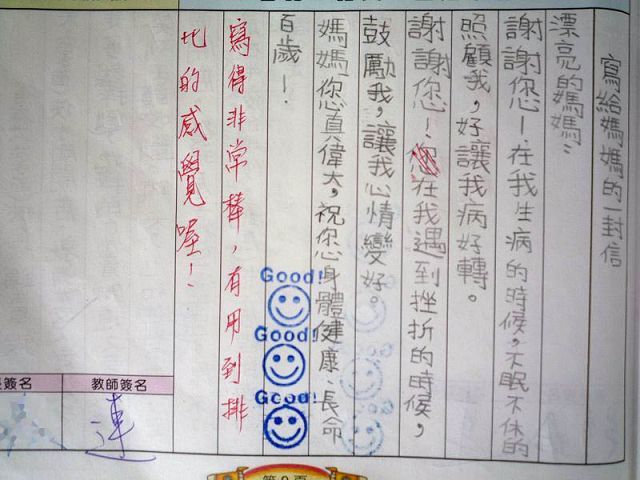 寫給媽媽的一封信
漂亮的媽媽：
謝謝您！在我生病的時候，不眠不休的
照顧我，好讓我病好轉。
謝謝您！您在我遇到挫折的時候，
鼓勵我，讓我心情變好。
媽媽你真偉大，祝您身體健康、長命
百歲！
寫得非常棒，有用到排
比的感覺喔！
Good!
Good!
Good!
教師簽名
連
簽名
第9頁